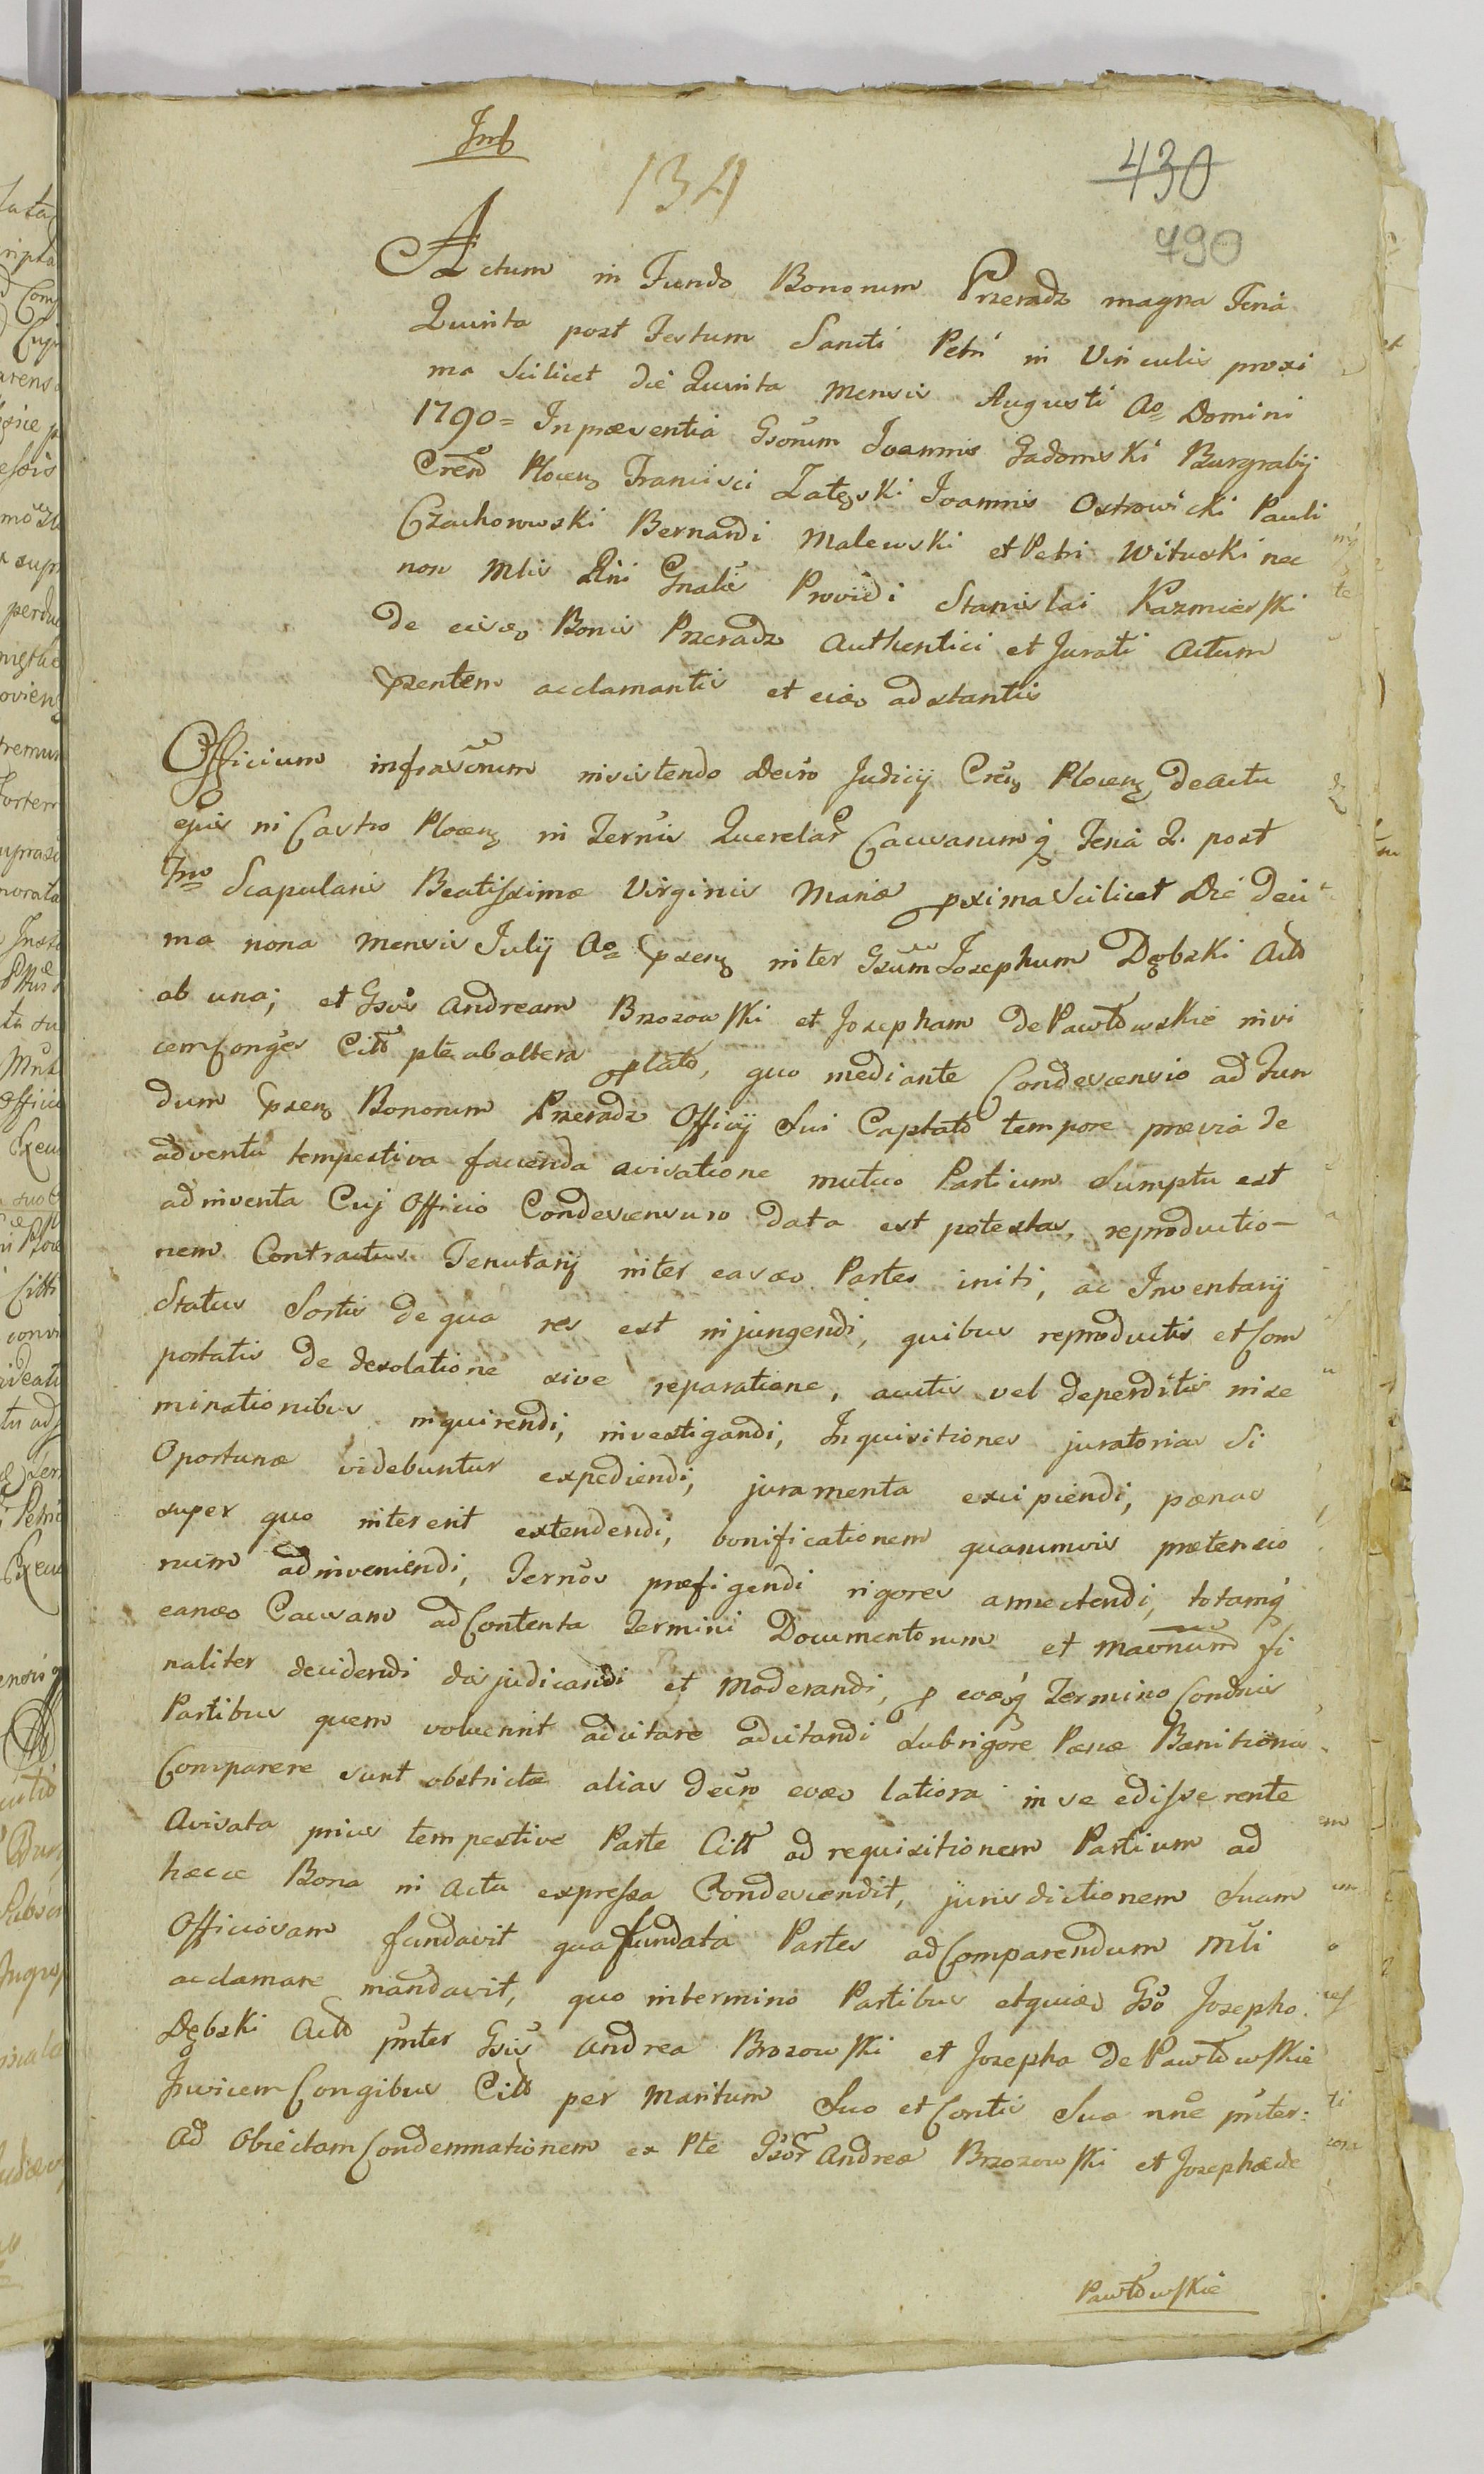 134
430
790
Actum in Fundo Bonorum Przeradz magna Feria
Quinta post Festum Sancti Petri in Vinculis proxi
ma scilicet die Quinta Mensis Augusti Ao Domini
1790= In præsentia Gsorum Joannis Gadomski Burgrabij
Crens Plocen Francisci Załęski Joannis Ostrowicki Pauli
Czachorowski Bernardi Malewski et Petri Wituski nec
non Mlis Rni Gnalis Providi Stanislai Kazmierski
de eisdo Bonis Przeradz Authentici et Jurati Actum
præntem acclamantis et eido adstantis
Officium infrascrum insistendo decro Judicij Crens Plocen de actu
ejus in Castro Plocen in Termis Querelar Causarumq Feria 2. post
Ftm Scapularis Beatissimæ Virginis Mariæ pxima scilicet Die deci
ma nona Mensis Julij Ao præsen inter Gsum Josephum Dębski Acto
ab una; et Gsos Andream Brzozowski et Josepham de Pawłowskie invi
cem Conges Citt pte ab altera plato, quo mediante Condescensio ad Fun
dum præsen Bonorum Przeradz Officij Sui Captato tempore prævia de
adventu tempestiva facienda avisatione mutuo Partium Sumptu est
adinventa Cuj Officio Condescensuro data est potestas, reproductio-
nem Contractus Tenutarij inter easdo Partes initi, ac Inventarij
Status Sortis de qua res est injungendi, quibus reproductis et Com
portatis de desolatione sive reparatione, auctis vel deperditis inse
minationibus inquirendi, investigandi, Inquisitiones juratorias si
Oportunæ videbuntur expediendi, juramenta excipiendi, pænas
super quo intererit extendendi, bonificationem quarumvis prætensio
num adinveniendi, Termos præfigendi rigores annectendi, totamq
eando Causam ad Contenta Termini Documentorum et Maonum fi
naliter decidendi disjudicandi et Moderandi, p eodoq Termino Condnis
Partibus quem voluerint adcitare adcitandi Sub rigore Pænæ Banitionis
Comparere sunt obstrictæ alias Decro eodo latiora in se edisserente
Avisata prius tempestive Parte Citt ad requisitionem Partium ad
hæcce Bona in Actu expressa Condescendit, jurisdictionem Suam
Officiosam fundavit qua fundata Partes ad Comparendum Mli
acclamare mandavit, quo in termino Partibus etquido Gso Josepho
Dębski Acto pnter Gsis Andrea Brzozowski et Josepha de Pawłowskie
Invicem Congibus Citt per Maritum Suo et Contis Suæ nne pnter.
Ad Obiectam Condemnationem ex Pte Gsor Andreæ Brzozowski et Josephæ de
Pawłowskie